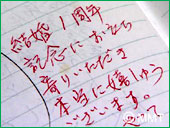 結婚1周年
記念にお立ち
寄りいただき
本当に嬉しゅう
ございます。